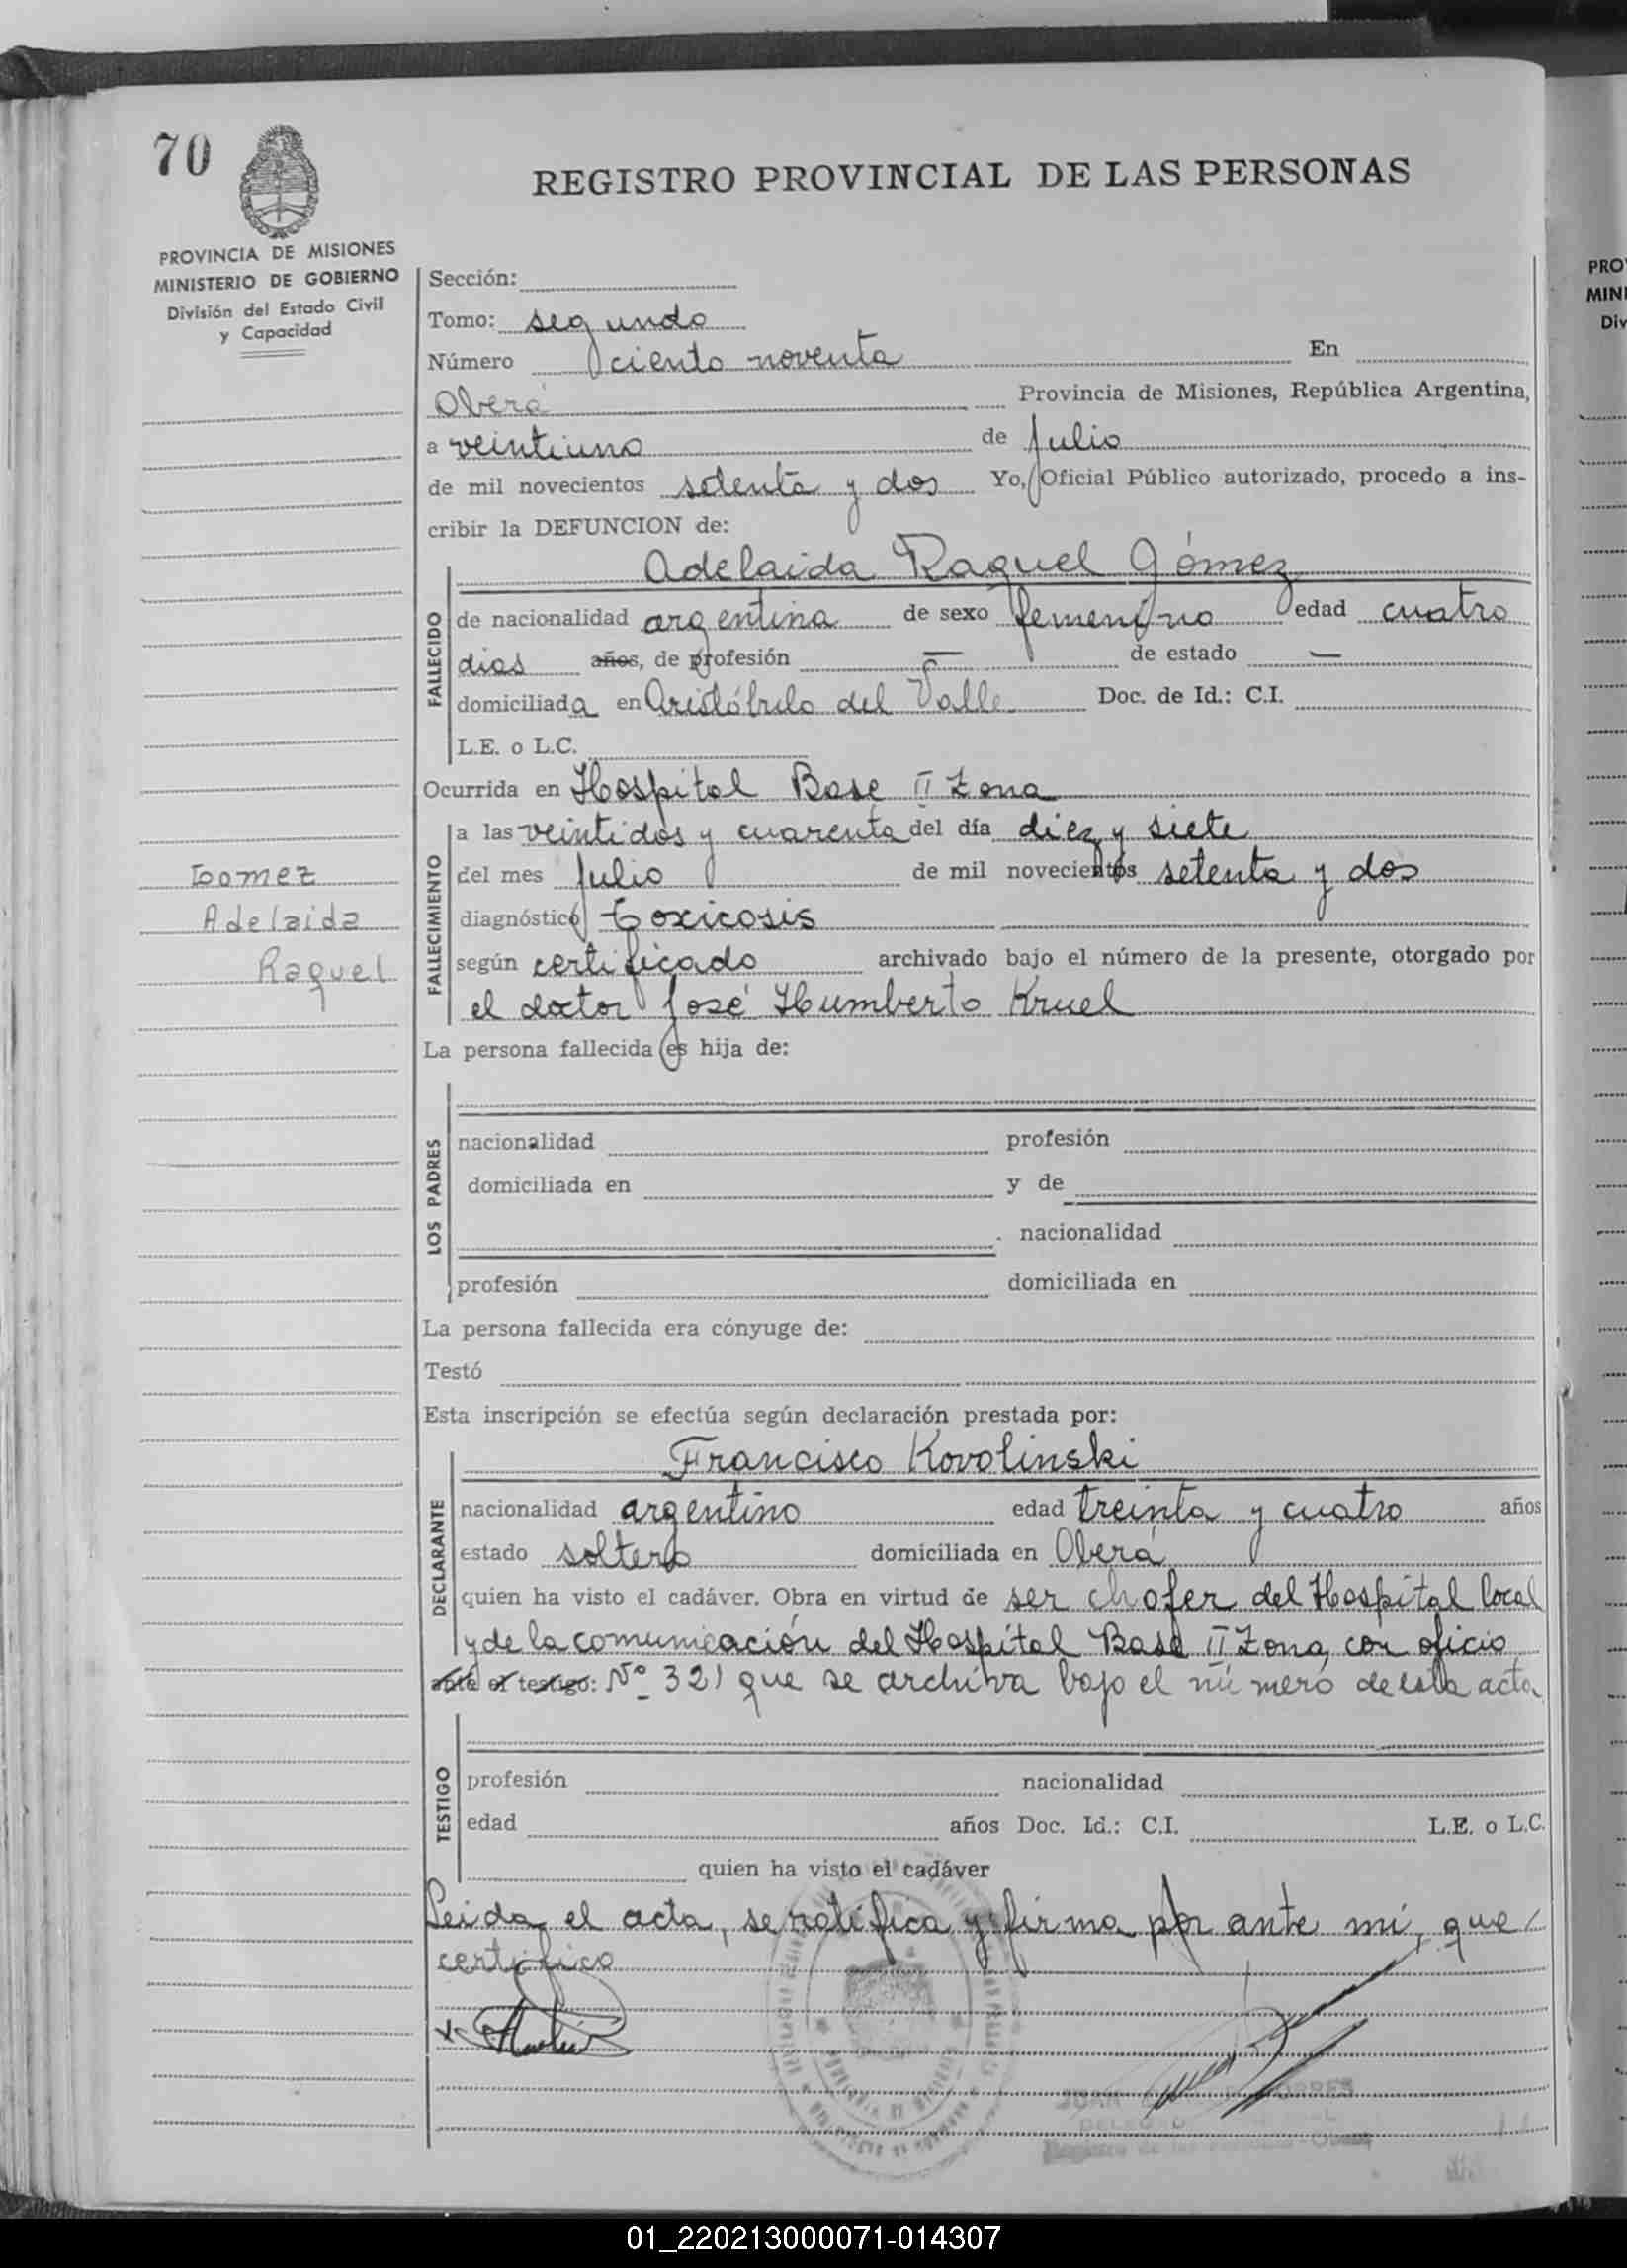 70
REGISTRO PROVINCIAL DE LAS PERSONAS
PROVINCIA DE MISIONES
MINISTERIO DE GOBIERNO
División del Estado Civil
y Capacidad
Sección:
Tomo: segundo
Número ciento noventa En
Oberá Provincia de Misiones, República Argentina,
a veintiuno de Julio
de mil novecientos setenta y dos Yo, Oficial Público autorizado, procedo a ins-
cribir la DEFUNCION de:
FALLECIDO
Adelaida Raquel Gómez
de nacionalidad argentina de sexo femenino edad cuatro
dias años, de profesión — de estado —
domiciliada en Aristóbulo del Valle Doc. de Id.: C.I.
L.E. o L.C.
Ocurrida en Hospital Base II Zona
FALLECIMIENTO
a las veintidos y cuarenta del día diez y siete
del mes Julio de mil novecientos setenta y dos
diagnóstico Toxicosis
según certificado archivado bajo el número de la presente, otorgado por
el doctor José Humberto Kruel
Gomez
Adelaida
Raquel
La persona fallecida es hija de:
LOS PADRES
nacionalidad profesión
domiciliada en y de
nacionalidad
profesión domiciliada en
La persona fallecida era cónyuge de:
Testó
Esta inscripción se efectúa según declaración prestada por:
DECLARANTE
Francisco Kovolinski
nacionalidad argentino edad treinta y cuatro años
estado soltero domiciliada en Oberá
quien ha visto el cadáver. Obra en virtud de ser chofer del Hospital local
y de la comunicación del Hospital Base II Zona, con oficio
ante el testigo: Nº 321 que se archiva bajo el número de esta acta
TESTIGO
profesión nacionalidad
edad años Doc. Id.: C.I. L.E. o L.C.
quien ha visto el cadáver
Leida el acta, se ratifica y firma por ante mí, que
certifico
PRO
MINI
Div
01_220213000071-014307